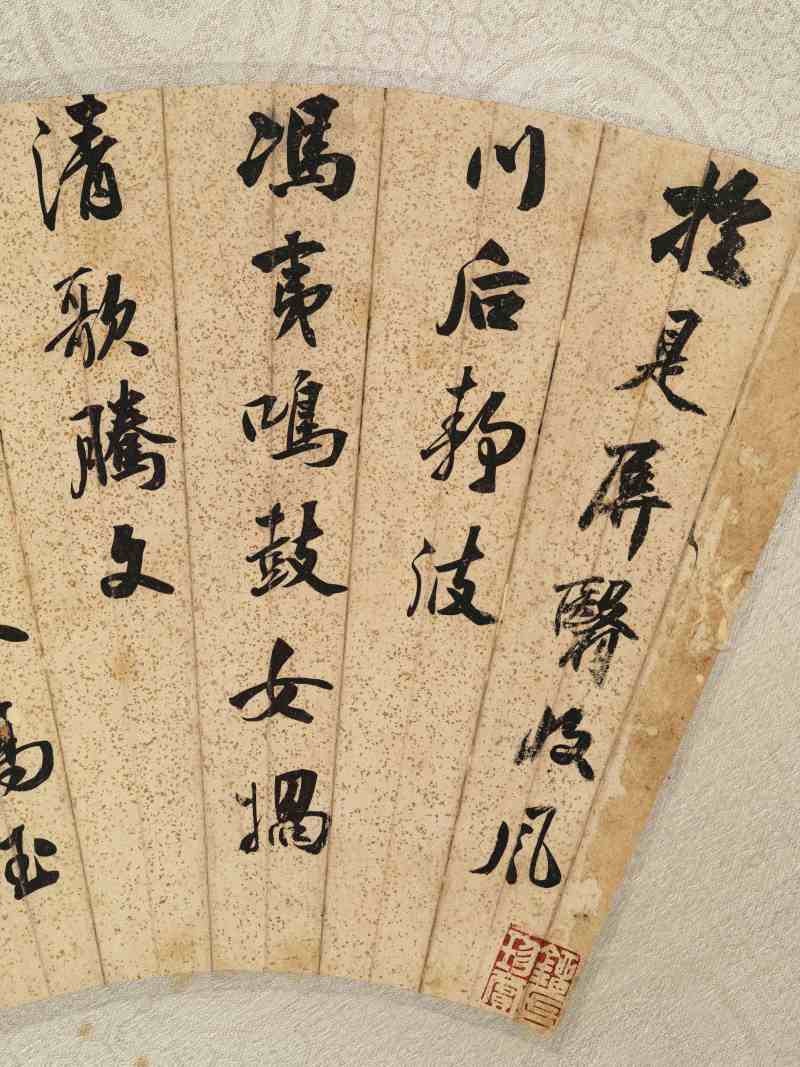 扵是屏翳收風
川后静波
馮夷鳴鼓女媧
清歌騰文
玉
珍賞